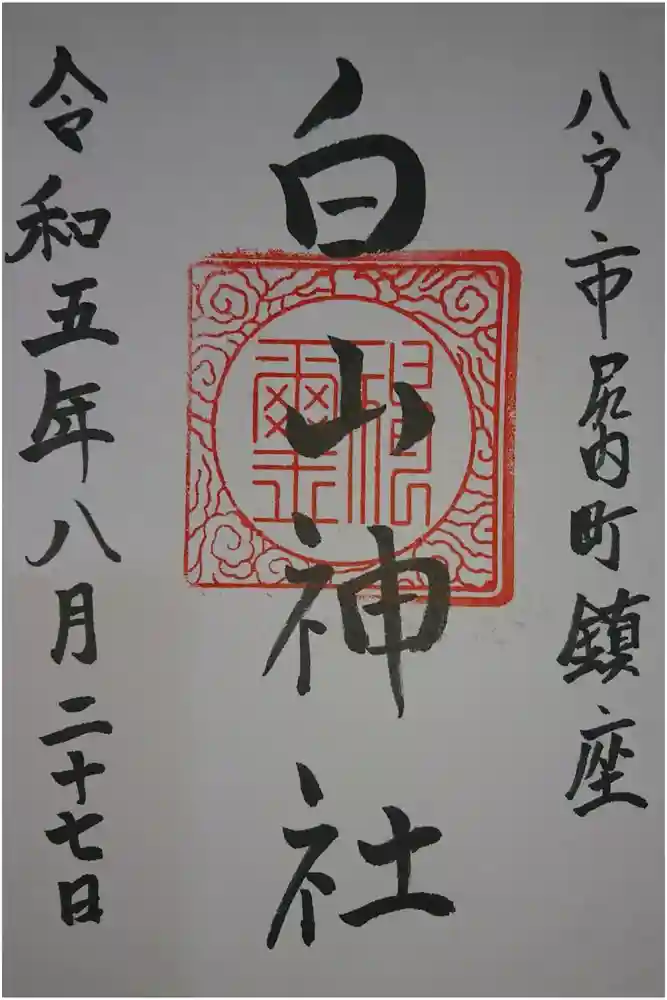 八戸市尻内町鎮座
白山神社
令和五年八月二十七日